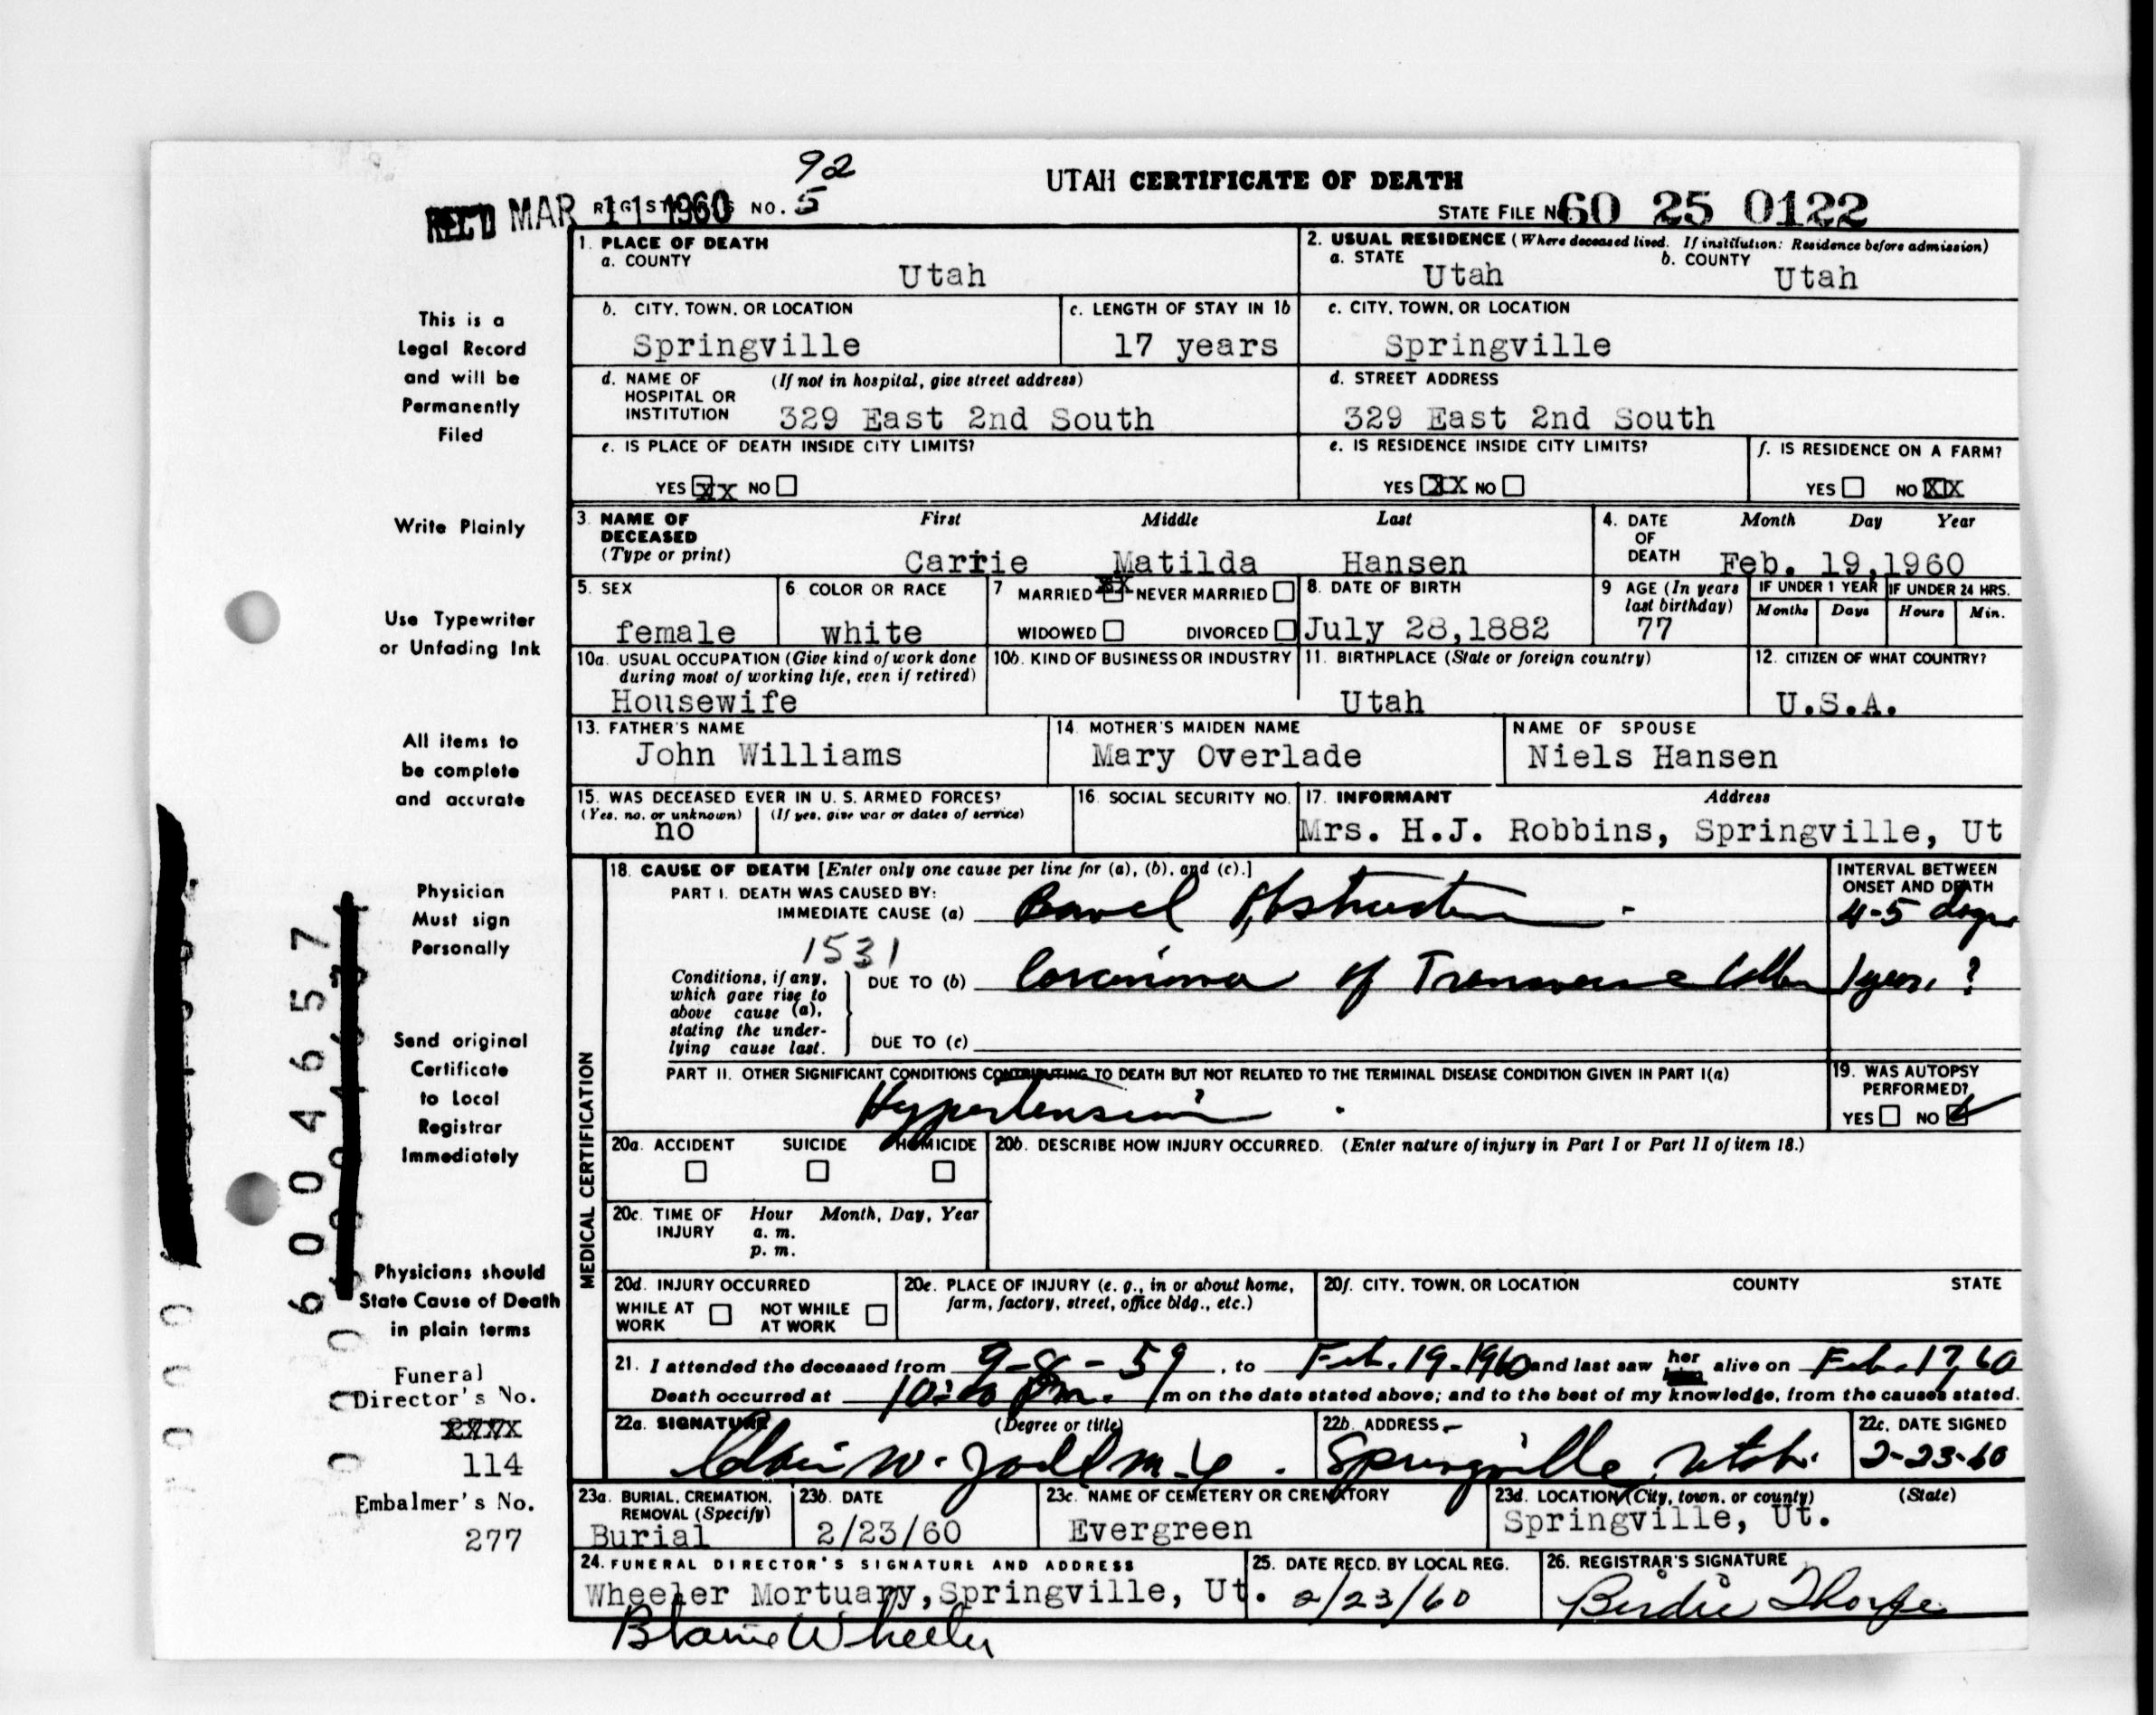 92
UTAH CERTIFICATE OF DEATH
REC'D MAR 11 1960 NO. 5
STATE FILE NO. 60 25 0122
1. PLACE OF DEATH
a. COUNTY
Utah
2. USUAL RESIDENCE (Where deceased lived. If institution: Residence before admission)
a. STATE Utah b. COUNTY Utah
b. CITY, TOWN, OR LOCATION
Springville
c. LENGTH OF STAY IN 1b
17 years
c. CITY, TOWN, OR LOCATION
Springville
d. NAME OF HOSPITAL OR INSTITUTION (If not in hospital, give street address)
329 East 2nd South
d. STREET ADDRESS
329 East 2nd South
e. IS PLACE OF DEATH INSIDE CITY LIMITS?
YES XX NO
e. IS RESIDENCE INSIDE CITY LIMITS?
YES XX NO
f. IS RESIDENCE ON A FARM?
YES NO XX
3. NAME OF DECEASED (Type or print)
First Middle Last
Carrie Matilda Hansen
4. DATE OF DEATH
Month Day Year
Feb. 19,1960
5. SEX
female
6. COLOR OR RACE
white
7 MARRIED XX NEVER MARRIED
WIDOWED DIVORCED
8. DATE OF BIRTH
July 28,1882
9 AGE (In years last birthday)
77
IF UNDER 1 YEAR
Months Days
IF UNDER 24 HRS.
Hours Min.
10a. USUAL OCCUPATION (Give kind of work done during most of working life, even if retired)
Housewife
10b. KIND OF BUSINESS OR INDUSTRY
11. BIRTHPLACE (State or foreign country)
Utah
12. CITIZEN OF WHAT COUNTRY?
U.S.A.
13. FATHER'S NAME
John Williams
14. MOTHER'S MAIDEN NAME
Mary Overlade
NAME OF SPOUSE
Niels Hansen
15. WAS DECEASED EVER IN U. S. ARMED FORCES?
(Yes, no, or unknown) (If yes, give war or dates of service)
no
16. SOCIAL SECURITY NO.
17. INFORMANT Address
Mrs. H.J. Robbins, Springville, Ut
MEDICAL CERTIFICATION
18. CAUSE OF DEATH [Enter only one cause per line for (a), (b), and (c).]
PART I. DEATH WAS CAUSED BY:
IMMEDIATE CAUSE (a) Bowel Obstruction
INTERVAL BETWEEN ONSET AND DEATH
4-5 days
1531
Conditions, if any, which gave rise to above cause (a), stating the underlying cause last.
DUE TO (b) Carcinoma of Transverse Colon 1 year ?
DUE TO (c)
PART II. OTHER SIGNIFICANT CONDITIONS CONTRIBUTING TO DEATH BUT NOT RELATED TO THE TERMINAL DISEASE CONDITION GIVEN IN PART I(a)
Hypertension
19. WAS AUTOPSY PERFORMED?
YES NO
20a. ACCIDENT SUICIDE HOMICIDE
20b. DESCRIBE HOW INJURY OCCURRED. (Enter nature of injury in Part I or Part II of item 18.)
20c. TIME OF INJURY Hour Month, Day, Year
a. m.
p. m.
20d. INJURY OCCURRED
WHILE AT WORK NOT WHILE AT WORK
20e. PLACE OF INJURY (e. g., in or about home, farm, factory, street, office bldg., etc.)
20f. CITY, TOWN, OR LOCATION COUNTY STATE
21. I attended the deceased from 9-8-59, to Feb. 19-1960 and last saw her alive on Feb. 17, 60
Death occurred at m on the date stated above; and to the best of my knowledge, from the causes stated.
22a. SIGNATURE (Degree or title)
W.
22b. ADDRESS
Springville Utah.
22c. DATE SIGNED
2-23-60
23a. BURIAL, CREMATION, REMOVAL (Specify)
Burial
23b. DATE
2/23/60
23c. NAME OF CEMETERY OR CREMATORY
Evergreen
23d. LOCATION (City, town, or county) (State)
Springville, Ut.
24. FUNERAL DIRECTOR'S SIGNATURE AND ADDRESS
Wheeler Mortuary,Springville, Ut.
Blaine Wheeler
25. DATE RECD. BY LOCAL REG.
2/23/60
26. REGISTRAR'S SIGNATURE
Birdie Thorpe
This is a
Legal Record
and will be
Permanently
Filed
Write Plainly
Use Typewriter
or Unfading Ink
All items to
be complete
and accurate
Physician
Must sign
Personally
Send original
Certificate
to Local
Registrar
Immediately
Physicians should
State Cause of Death
in plain terms
Funeral
Director's No.
114
Embalmer's No.
277
6004657